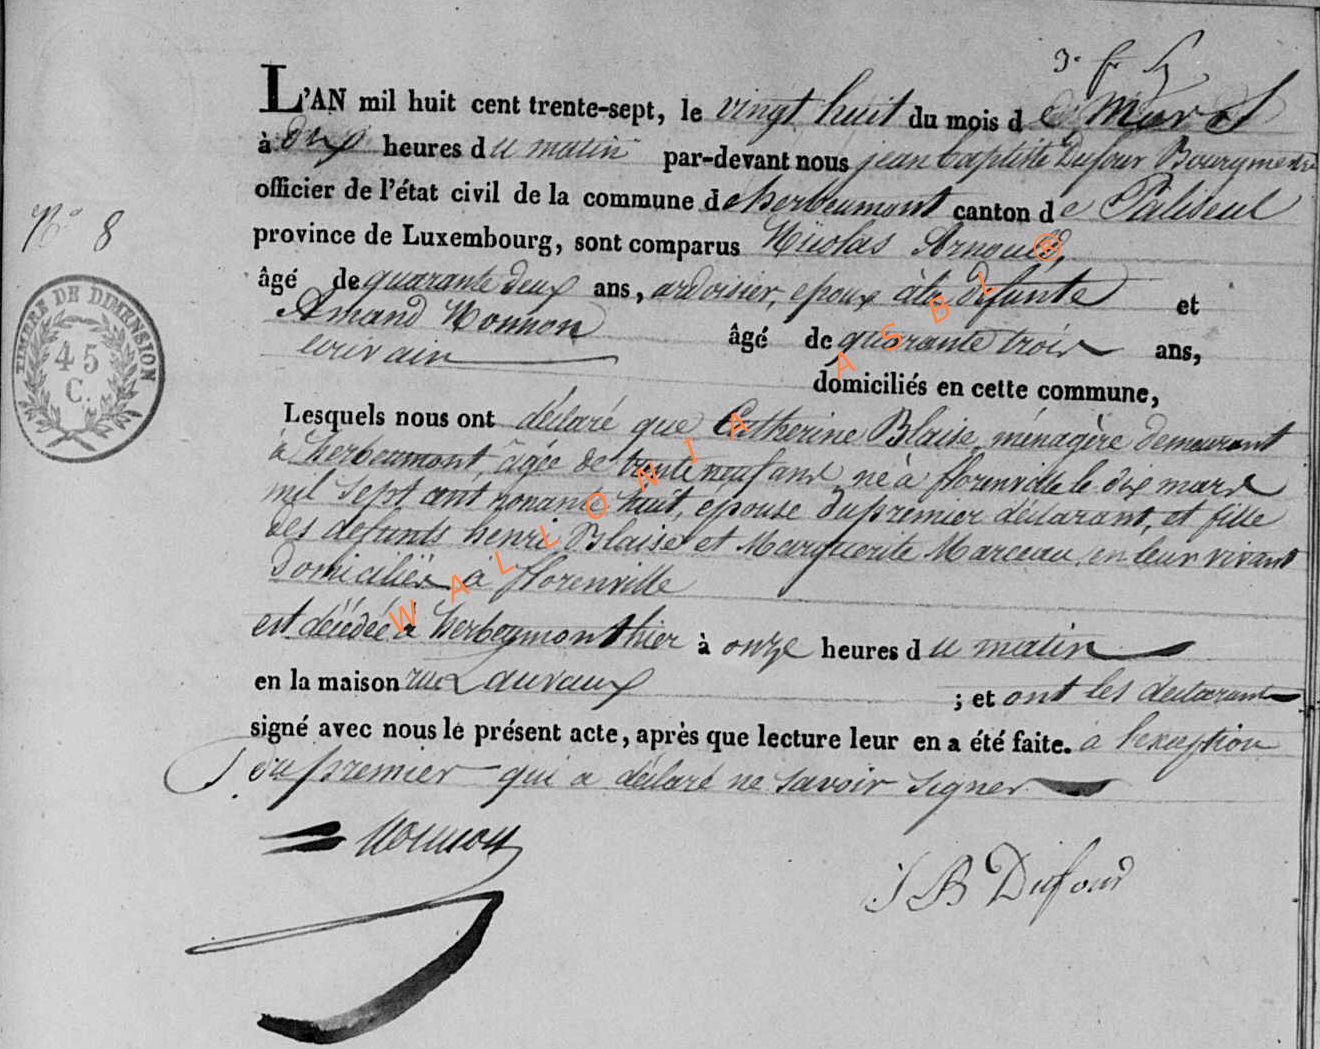 L'AN mil huit cent trente-sept, le vingt huit du mois de Mars
à dix heures du matin par-devant nous jean baptiste Dufour Bourgmestre
officier de l'état civil de la commune de herbeumont canton de Paliseul
province de Luxembourg, sont comparus Nicolas Arnould,
N° 8
âgé de quarante deux ans, ardoisier, epoux à la defunte et
Amand Nonnon âgé de quarante trois ans,
ecrivain
domiciliés en cette commune,
TIMBRE DE DIMENSION
45
C.
Lesquels nous ont déclaré que Catherine Blaise, ménagère demeurant
à herbeumont, âgée de trente neuf ans, né à florenville le dix mars
mil sept cent nonante huit, épouse du premier déclarant, et fille
des defunts henri Blaise et Marguerite Marceau, en leur vivant
domiciliés a florenville
est décédée à herbeumont hier à onze heures du matin
en la maison rue Lauvaux ; et ont les declarants
signé avec nous le présent acte, après que lecture leur en a été faite. à l'exception
du premier qui a déclaré ne savoir signer
Nonnon
J B Dufour
WALLONIA ASBL ®